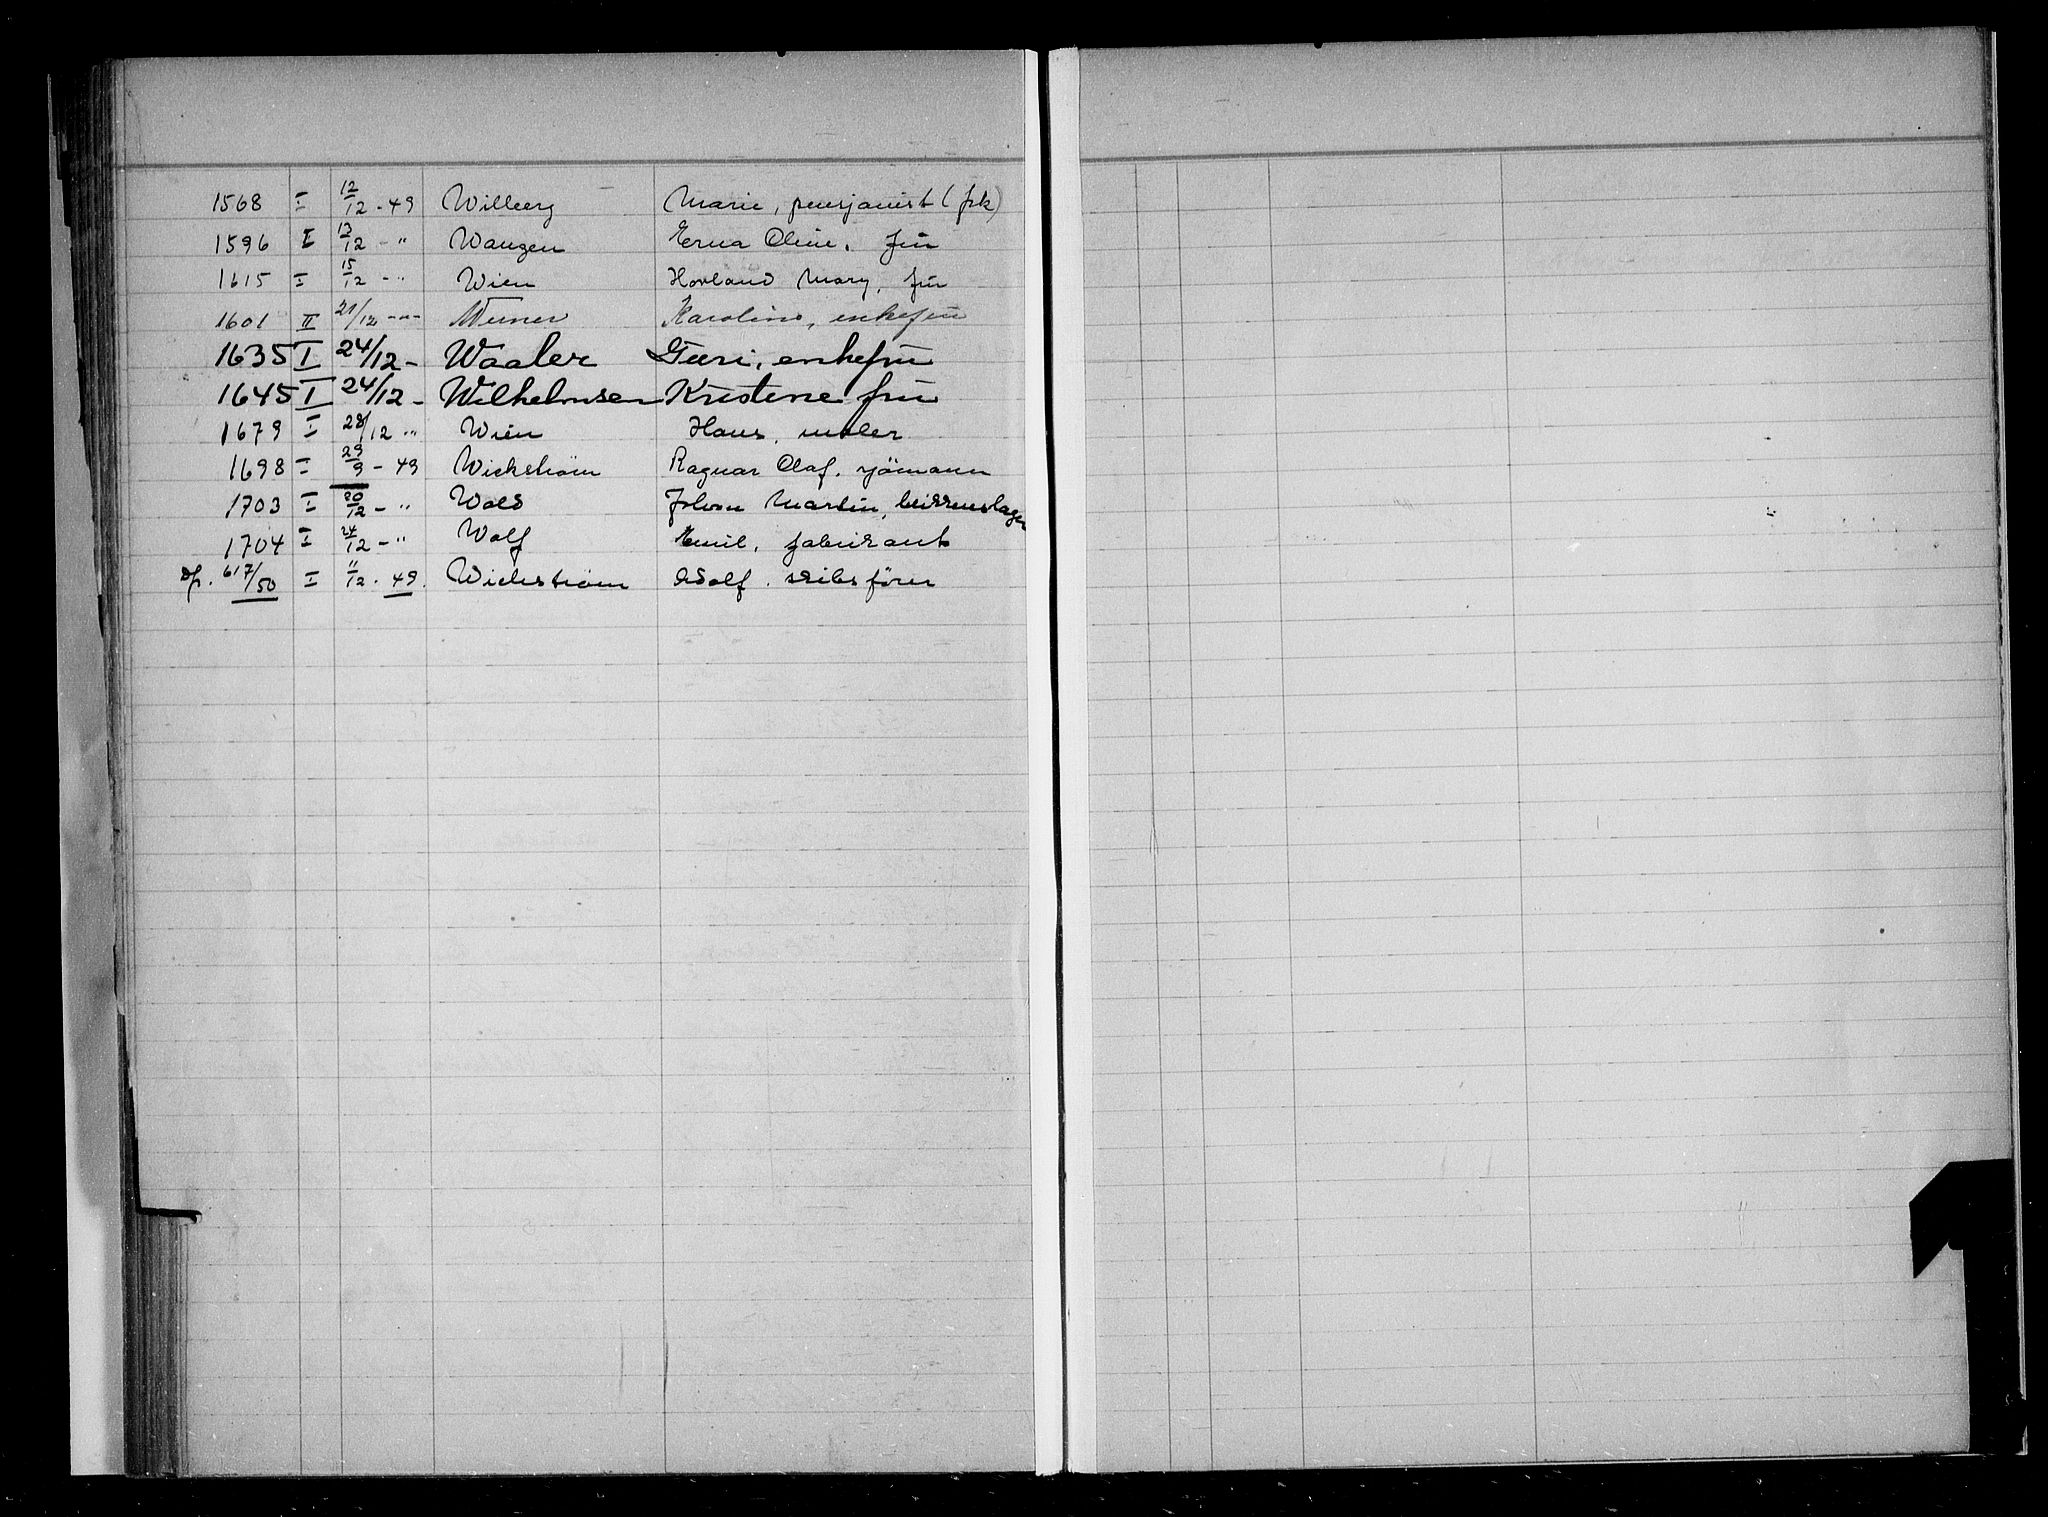 1568 I 12/12 - 49 Willberg Marie, pensjonist (frk)
1596 I 13/12 - " Wangen Erna Oline, frü
1615 I 15/12 - " Wien Hovland Mary, frü
1601 II 21/12 - " - Werner Karoline, enkefrü
1635 I 24/12 - Waaler Guri, enkefrü
1645 I 24/12 - Wilhelmsen Kristine frü
1679 I 28/12 " Wien Hans, maler
1698 I 29/9 - 49 Wickstrøm Ragnar Olaf, sjömann
1703 I 20/12 - " Wold Johan Martin, blikkenslager
1704 I 24/12 - " Wolf Emil, fabrikant
Df. 617/50 I 11/12 - 49. Wickstrøm Adolf, skibsfører